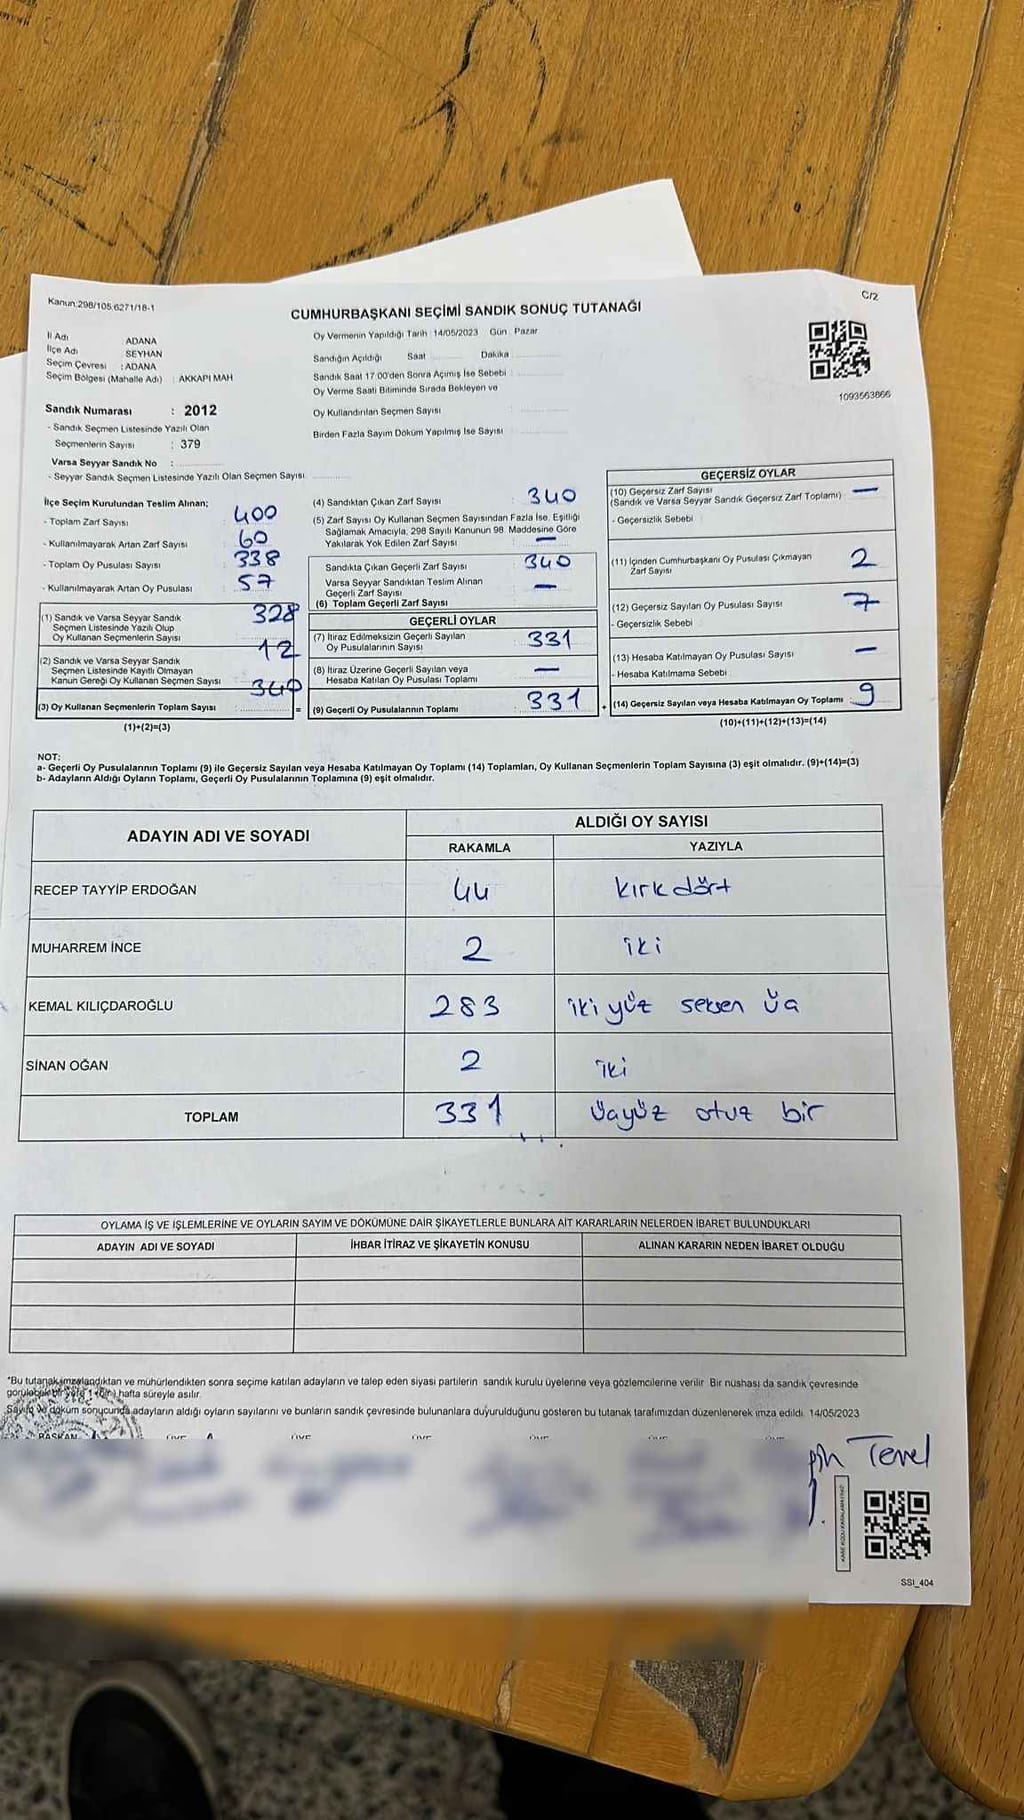 Kanun:298/105.6271/18-1
C/2
CUMHURBAŞKANI SEÇİMİ SANDIK SONUÇ TUTANAĞI
İl Adı ADANA
İlçe Adı SEYHAN
Seçim Çevresi : ADANA
Seçim Bölgesi (Mahalle Adı) : AKKAPI MAH
Oy Vermenin Yapıldığı Tarih 14/05/2023 Gün Pazar
Sandığın Açıldığı Saat Dakika
Sandık Saat 17.00'den Sonra Açımış İse Sebebi
Oy Verme Saati Bitiminde Sırada Bekleyen ve
Oy Kullandırılan Seçmen Sayısı
Birden Fazla Sayım Döküm Yapılmış İse Sayısı
1093563866
Sandık Numarası : 2012
- Sandık Seçmen Listesinde Yazılı Olan
Seçmenlerin Sayısı : 379
Varsa Seyyar Sandık No :
- Seyyar Sandık Seçmen Listesinde Yazılı Olan Seçmen Sayısı
İlçe Seçim Kurulundan Teslim Alınan;
- Toplam Zarf Sayısı 400
- Kullanılmayarak Artan Zarf Sayısı 60
- Toplam Oy Pusulası Sayısı 338
- Kullanılmayarak Artan Oy Pusulası 57
(1) Sandık ve Varsa Seyyar Sandık
Seçmen Listesinde Yazılı Olup
Oy Kullanan Seçmenlerin Sayısı 328
(2) Sandık ve Varsa Seyyar Sandık
Seçmen Listesinde Kayıtlı Olmayan
Kanun Gereği Oy Kullanan Seçmen Sayısı 12
(3) Oy Kullanan Seçmenlerin Toplam Sayısı 340
=
(1)+(2)=(3)
(4) Sandıktan Çıkan Zarf Sayısı : 340
(5) Zarf Sayısı Oy Kullanan Seçmen Sayısından Fazla İse, Eşitliği
Sağlamak Amacıyla, 298 Sayılı Kanunun 98. Maddesine Göre
Yakılarak Yok Edilen Zarf Sayısı —
Sandıkta Çıkan Geçerli Zarf Sayısı 340
Varsa Seyyar Sandıktan Teslim Alınan
Geçerli Zarf Sayısı —
(6) Toplam Geçerli Zarf Sayısı
GEÇERLİ OYLAR
(7) İtiraz Edilmeksizin Geçerli Sayılan
Oy Pusulalarının Sayısı 331
(8) İtiraz Üzerine Geçerli Sayılan veya
Hesaba Katılan Oy Pusulası Toplamı —
(9) Geçerli Oy Pusulalarının Toplamı 331
+
GEÇERSİZ OYLAR
(10) Geçersiz Zarf Sayısı
(Sandık ve Varsa Seyyar Sandık Geçersiz Zarf Toplamı) —
- Geçersizlik Sebebi
(11) İçinden Cumhurbaşkanı Oy Pusulası Çıkmayan
Zarf Sayısı 2
(12) Geçersiz Sayılan Oy Pusulası Sayısı 7
- Geçersizlik Sebebi
(13) Hesaba Katılmayan Oy Pusulası Sayısı —
- Hesaba Katılmama Sebebi
(14) Geçersiz Sayılan veya Hesaba Katılmayan Oy Toplamı 9
(10)+(11)+(12)+(13)=(14)
NOT:
a- Geçerli Oy Pusulalarının Toplamı (9) ile Geçersiz Sayılan veya Hesaba Katılmayan Oy Toplamı (14) Toplamları, Oy Kullanan Seçmenlerin Toplam Sayısına (3) eşit olmalıdır. (9)+(14)=(3)
b- Adayların Aldığı Oyların Toplamı, Geçerli Oy Pusulalarının Toplamına (9) eşit olmalıdır.
ADAYIN ADI VE SOYADI ALDIĞI OY SAYISI
RAKAMLA YAZIYLA
RECEP TAYYİP ERDOĞAN 44 kırkdört
MUHARREM İNCE 2 iki
KEMAL KILIÇDAROĞLU 283 iki yüz seksen üç
SİNAN OĞAN 2 iki
TOPLAM 331 üçyüz otuz bir
OYLAMA İŞ VE İŞLEMLERİNE VE OYLARIN SAYIM VE DÖKÜMÜNE DAİR ŞİKAYETLERLE BUNLARA AİT KARARLARIN NELERDEN İBARET BULUNDUKLARI
ADAYIN ADI VE SOYADI İHBAR İTİRAZ VE ŞİKAYETİN KONUSU ALINAN KARARIN NEDEN İBARET OLDUĞU
*Bu tutanak imzalandıktan ve mühürlendikten sonra seçime katılan adayların ve talep eden siyasi partilerin sandık kurulu üyelerine veya gözlemcilerine verilir Bir nüshası da sandık çevresinde
görülebilir bir yere 1 (bir) hafta süreyle asılır.
Sayım ve döküm sonucunda adayların aldığı oyların sayılarını ve bunların sandık çevresinde bulunanlara duyurulduğunu gösteren bu tutanak tarafımızdan düzenlenerek imza edildi. 14/05/2023
BAŞKAN ÜYE ÜYE ÜYE ÜYE ÜYE ÜYE
Temel
SSI_404